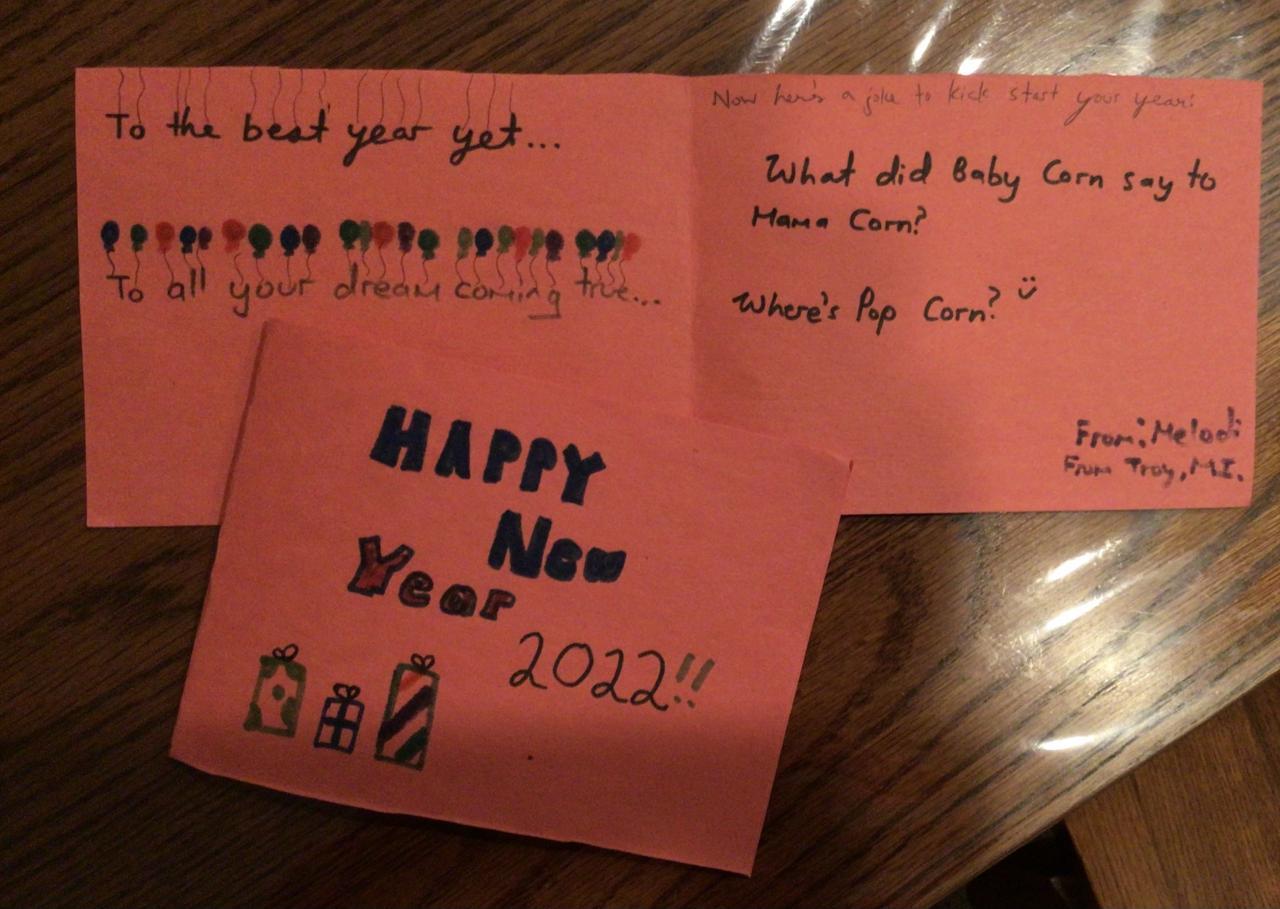 To the best year yet...
To all your dream coming true...
Now here's a joke to kick start your year:
What did Baby Corn say to
Mama Corn?
Where's Pop Corn?
From: Melodi
From Troy, M.I.
HAPPY
New
Year
2022!!